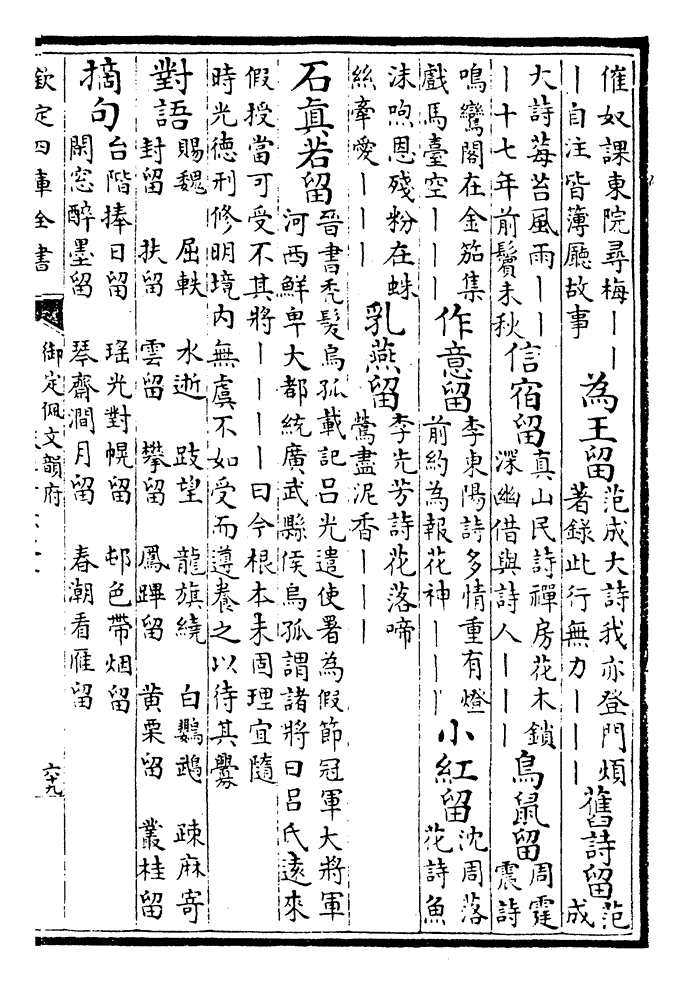 催奴課東院尋梅丨丨
丨自注皆薄廳故事
為王留
范成大詩我亦登門煩
著錄此行無力丨丨丨
舊詩留
范
成
大詩莓苔風雨丨丨
丨十七年前鬢未秋
信宿留
真山民詩禪房花木鎖
深幽借與詩人丨丨丨
鳥鼠留
周霆
震詩
鳴鸞閣在金笳集
戲馬臺空丨丨丨
作意留
李東陽詩多情重有燈
前約為報花神丨丨丨
小紅留
沈周落
花詩魚
沫呴恩殘粉在蛛
絲牽愛丨丨丨
乳燕留
李先芳詩花落啼
鶯盡泥香丨丨丨
石真若留
晉書禿髮烏孤載記呂光遣使署為假節冠軍大將軍
河西鮮卑大都統廣武縣侯烏孤謂諸將曰呂氏遠來
假授當可受不其將丨丨丨丨曰今根本未固理宜隨
時光德刑修明境內無虞不如受而遵養之以待其釁
對語
賜魏 屈軼 水逝 跂望 龍旗繞 白鸚鵡 疎麻寄
封留 扶留 雲留 攀留 鳳蹕留 黃栗留 叢桂留
摘句
台階捧日留 瑤光對幌留 邨色帶烟留
閑窓醉墨留 琴齋澗月留 春潮看雁留
欽定四庫全書
御定佩文韻府
六十九